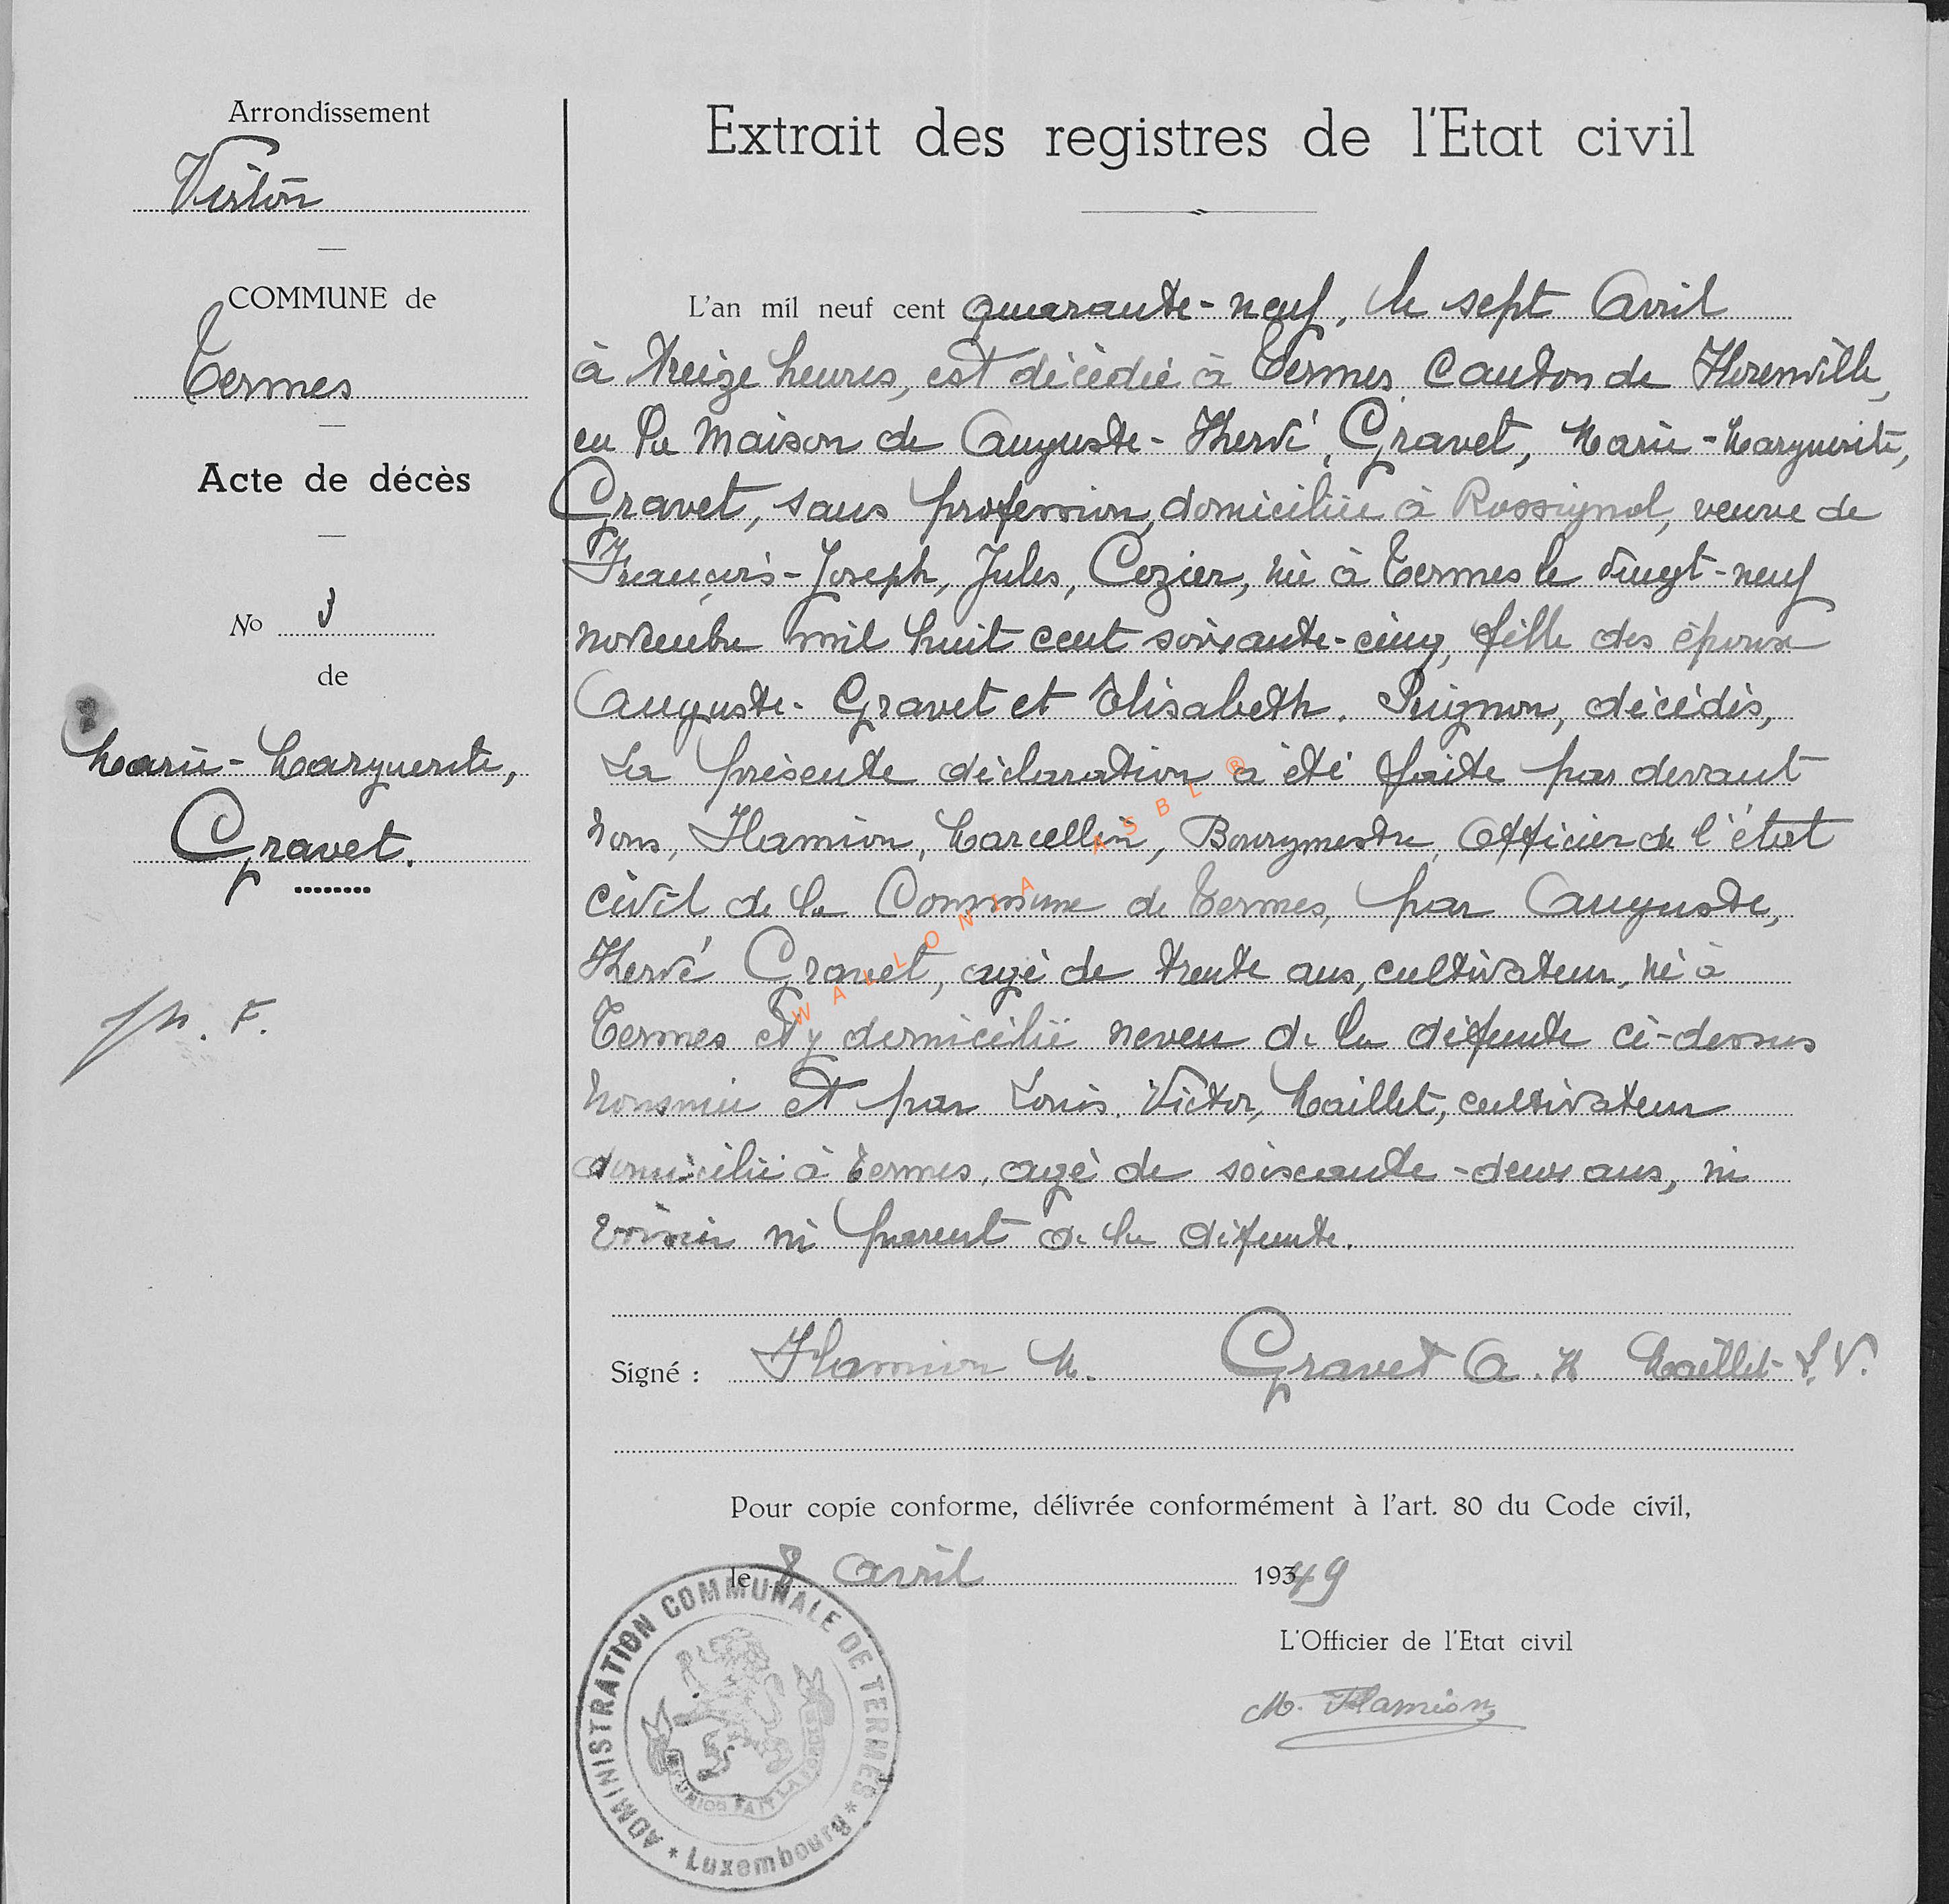 Arrondissement
Virton
COMMUNE de
Termes
Acte de décès
No 3
de
Marie-Marguerite,
Gravet.
Extrait des registres de l'Etat civil
L'an mil neuf cent quarante-neuf, le sept Avril
à treize heures, est décèdée à Termes Canton de Florenville,
en la maison de Auguste-Hervé, Gravet, Marie-Marguerite,
Gravet, sans profession, domiciliée à Rossignol, veuve de
François-Joseph, Jules, Cozier, née à Termes le vingt-neuf
novembre mil huit cent soixante-cinq, fille des époux
Auguste. Gravet et Elisabeth. Puignon, décédés,
La présente déclaration à été faite par devant
nous, Flamion, Marcellin, Bourgmestre, Officier de l'état
civil de la Commune de Termes, par Auguste,
Hervé Gravet, agé de trente ans, cultivateur, né à
Termes et y domicilié neveu de la défunte ci-dessus
nommée et par Louis. Victor, Maillet, cultivateur
domicilié à Termes, agé de soixante-deux ans, ni
voisin ni parent de la défunte.
Signé : Flamion M. Gravet A. H Maillet L.V.
Pour copie conforme, délivrée conformément à l'art. 80 du Code civil,
le 8 avril 19349
L'Officier de l'Etat civil
M. Flamion
ADMINISTRATION COMMUNALE DE TERMES
* Luxembourg *
L'UNION FAIT LA FORCE
WALLONIA ASBL ®